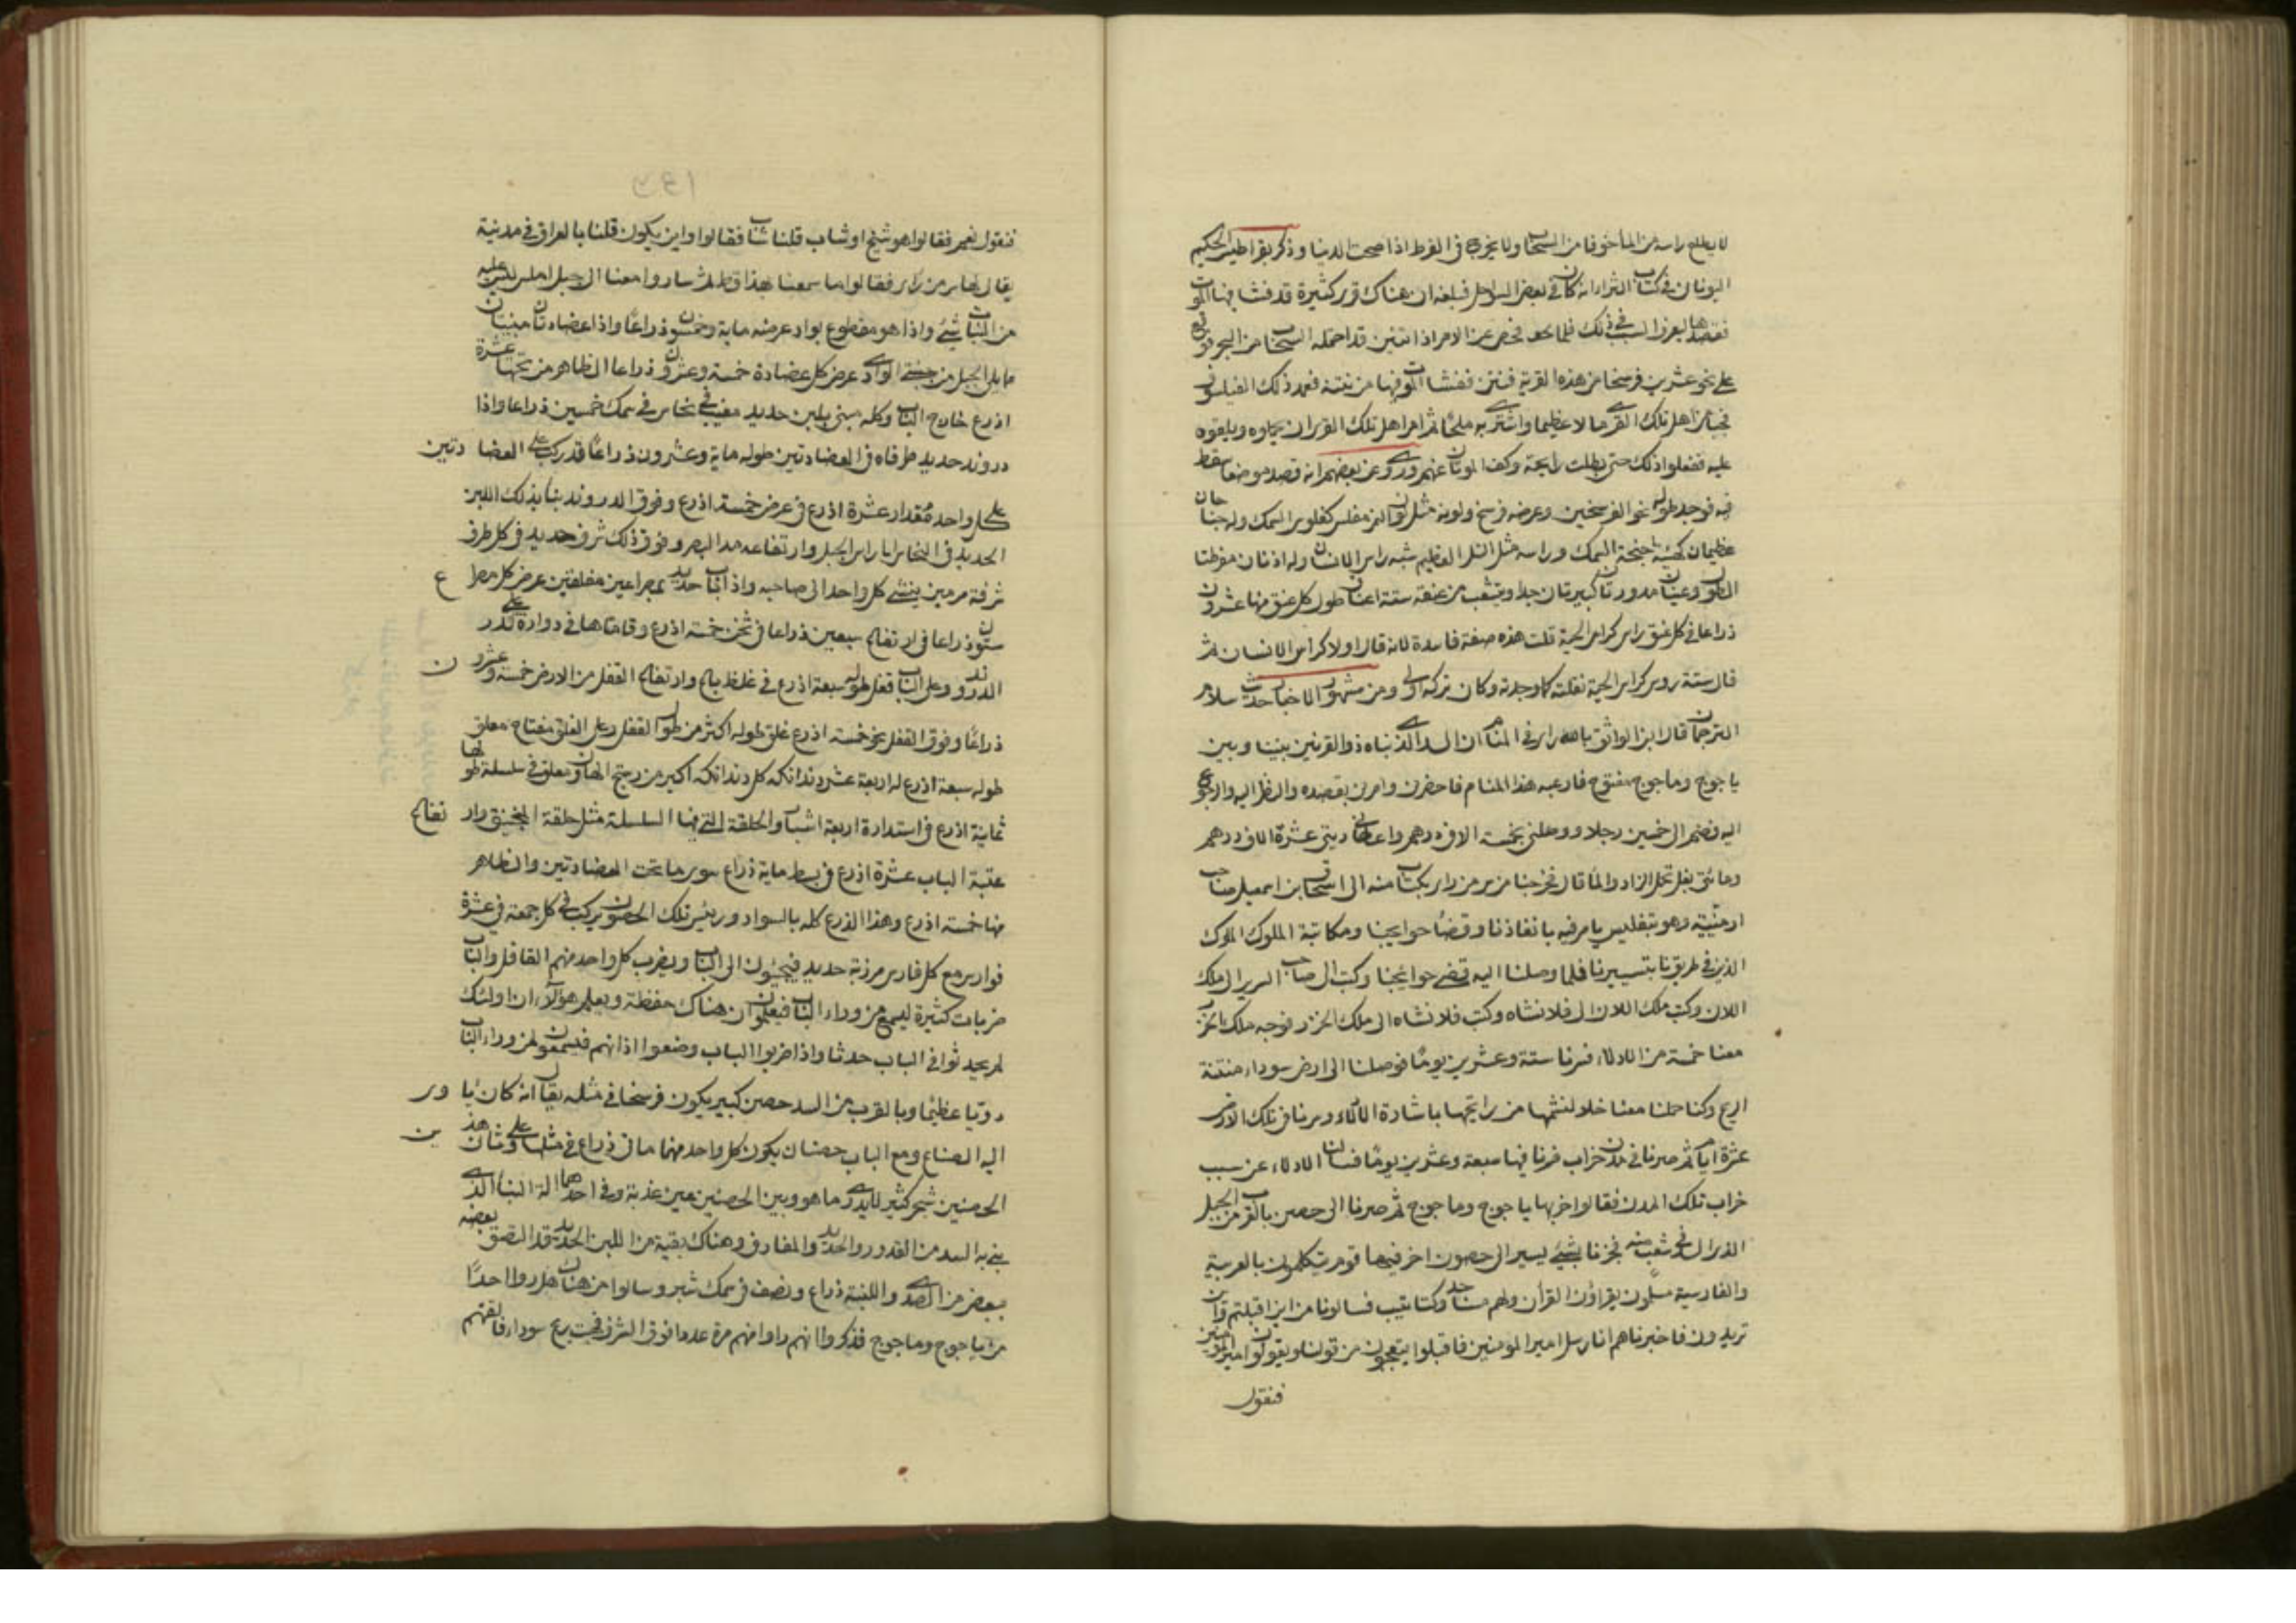 لا يطلع راسه من الما خوفا من السحاب ولا يخرج في الفرط اذا صحت الدنيا وذكر بقراطيس الحكيم
اليونان في كتاب الثرا انه كان في بعض السواحل فبلغه ان هناك قرى كثيرة قد فشا فيها الموت
فقصدها ليعرف السبب في ذلك فلما فحص عن الامر اذا تنين قد احتمله السحاب من البحر فوقع
على نحو عشرين فرسخا من هذه القرية فنتن ففشا الموت فيها من نتنه فعمد ذلك الفيلسوف
فجبا من اهل تلك القرى مالا عظيما واشترى به ملحا ثم امر اهل تلك القرى ان يحملوه ويلقوه
عليه ففعلوا ذلك حتى بطلت رايحته وكف الموتان عنهم وروى عن بعضهم انه قصد موضعا سقط
فيه فوجد طوله نحو الفرسخين وعرضه فرسخ ولونه مثل لون النمر مفلس كفلوس السمك وله جناحان
عظيمان كهيئة اجنحة السمك وراسه مثل التل العظيم شبه راس الانسان وله اذنان مفرطتا
الطول وعينان مدورتان كبيرتان جدا ويتشعب من عنقه ستة اعناق طول كل عنق منها عشرون
ذراعا في كل عنق راس كراس الحية قلت هذه صفة فاسدة لانه قال اولا كراس الانسان ثم
قال ستة روس كراس الحية نقلته كما وجدته وكان تركه اولى ومن مشهور الاخبار حديث سلام
الترجمان قال ان الواثق بالله راى في المنام ان السد الذي بناه ذو القرنين بيننا وبين
ياجوج وماجوج مفتوح فارعبه هذا المنام فاحضرني وامرني بقصده والنظر اليه والرجوع
اليه فضم الي خمسين رجلا ووصلني بخمسة الاف درهم واعطاني ديتي عشرة الاف درهم
ومائتي بغل تحمل الزاد والما قال فخرجنا من سر من راى بكتاب منه الى اسحاق بن اسمعيل صاحب
ارمنية وهو بتفليس يامر فيه بانفاذنا وقضا حوايجنا ومكاتبة الملوك الملوك
الذين في طريقنا بتسييرنا فلما وصلنا اليه قضى حوائجنا وكتب الى صاحب السرير الى ملك
اللان وكتب ملك اللان الى فلانشاه وكتب فلانشاه الى ملك الخزر فوجه ملك الخزر
معنا خمسة من الادلاء فسرنا ستة وعشرين يوما فوصلنا الى ارض سوداء منتنة
الريح وكنا حملنا معنا خلا لنشمها من رايحتها باشارة الادلاء وسرنا في تلك الارض
عشرة ايام ثم صرنا في مدن خراب فسرنا فيها سبعة وعشرين يوما فسالنا الادلاء عن سبب
خراب تلك المدن فقالوا خربها ياجوج وماجوج ثم صرنا الى حصن بالقرب من الجبل
الذي السد في شعب منه فجزنا بشيء يسير الى حصون اخر فيها قوم يتكلمون بالعربية
والفارسية مسلمون يقراؤن القران ولهم مساجد وكتاتيب فسالونا من اين اقبلتم واين
تريدون فاخبرناهم انا رسل امير المومنين فاقبلوا يتعجبون من قولنا ويقولون امير المومنين
فنقول
فنقول نعم فقالوا هو شيخ او شاب قلنا شاب فقالوا واين يكون قلنا بالعراق في مدينة
يقال لها سر من راى فقالوا ما سمعنا بهذا قط ثم ساروا معنا الى جبل املس ليس عليه
من النبات شيء واذا هو مقطوع بواد عرضه ماية وخمسون ذراعا واذا عضادتان مبنيتان
مما يلي الجبل من جنبتي الوادي عرض كل عضادة خمسة وعشرون ذراعا الظاهر من تحتها عشرة
اذرع خارج الباب وكله مبني بلبن حديد مغيب في نحاس في سمك خمسين ذراعا واذا
دروند حديد طرفاه في العضادتين طوله ماية وعشرون ذراعا قد ركب على العضادتين
على كل واحدة مقدار عشرة اذرع في عرض خمسة اذرع وفوق الدروند بناء بذلك اللبن
الحديد في النحاس الى راس الجبل وارتفاعه مد البصر وفوق ذلك شرف حديد في كل طرف
شرفة قرنين ينثني كل واحد الى صاحبه واذا باب حديد بمصراعين مغلقين عرض كل مصراع
ستون ذراعا في ارتفاع سبعين ذراعا في ثخن خمسة اذرع وقامتاها في دوارة على قدر
الدروند وعلى الباب قفل طوله سبعة اذرع في غلظ باع وارتفاع القفل من الارض خمسة وعشرون
ذراعا وفوق القفل نحو خمسة اذرع غلق طوله اكثر من طول القفل وعلى الغلق مفتاح معلق
طوله سبعة اذرع له اربعة عشر دندانكه كل دندانكه اكبر من دستج الهاون معلق في سلسلة طولها
ثمانية اذرع في استدارة اربعة اشبار والحلقة التي فيها السلسلة مثل حلقة المنجنيق وارتفاع
عتبة الباب عشرة اذرع في بسط ماية ذراع سوى ما تحت العضادتين والظاهر
منها خمسة اذرع وهذا الذرع كله بالسواد ورئيس تلك الحصون يركب في كل جمعة في عشرة
فوارس مع كل فارس مرزبة حديد فيجيئون الى الباب ويضرب كل واحد منهم القفل والباب
ضربات كثيرة ليسمع من وراء الباب فيعلموا ان هناك حفظة ويعلم هولاء ان اولئك
لم يحدثوا في الباب حدثا واذا ضربوا الباب وضعوا اذانهم فيسمعون لمن وراء الباب
دويا عظيما وبالقرب من السد حصن كبير يكون فرسخا في مثله يقال انه كان ياوى
اليه الصناع ومع الباب حصنان يكون كل واحد منهما مائتي ذراع في مثلها وعلى باب هذين
الحصنين شجر كثير لا يدرى ما هو وبين الحصنين عين عذبة وفي احدهما الة البنا الذي
بني به السد من القدور الحديد والمغارف وهناك بقية من اللبن الحديد قد التصق بعضه
ببعض من الصدى واللبنة ذراع ونصف في سمك شبر وسالوا من هناك هل راوا احدا
من ياجوج وماجوج فذكروا انهم راوا منهم مرة عددا فوق الشرف فهبت ريح سوداء فالقتهم